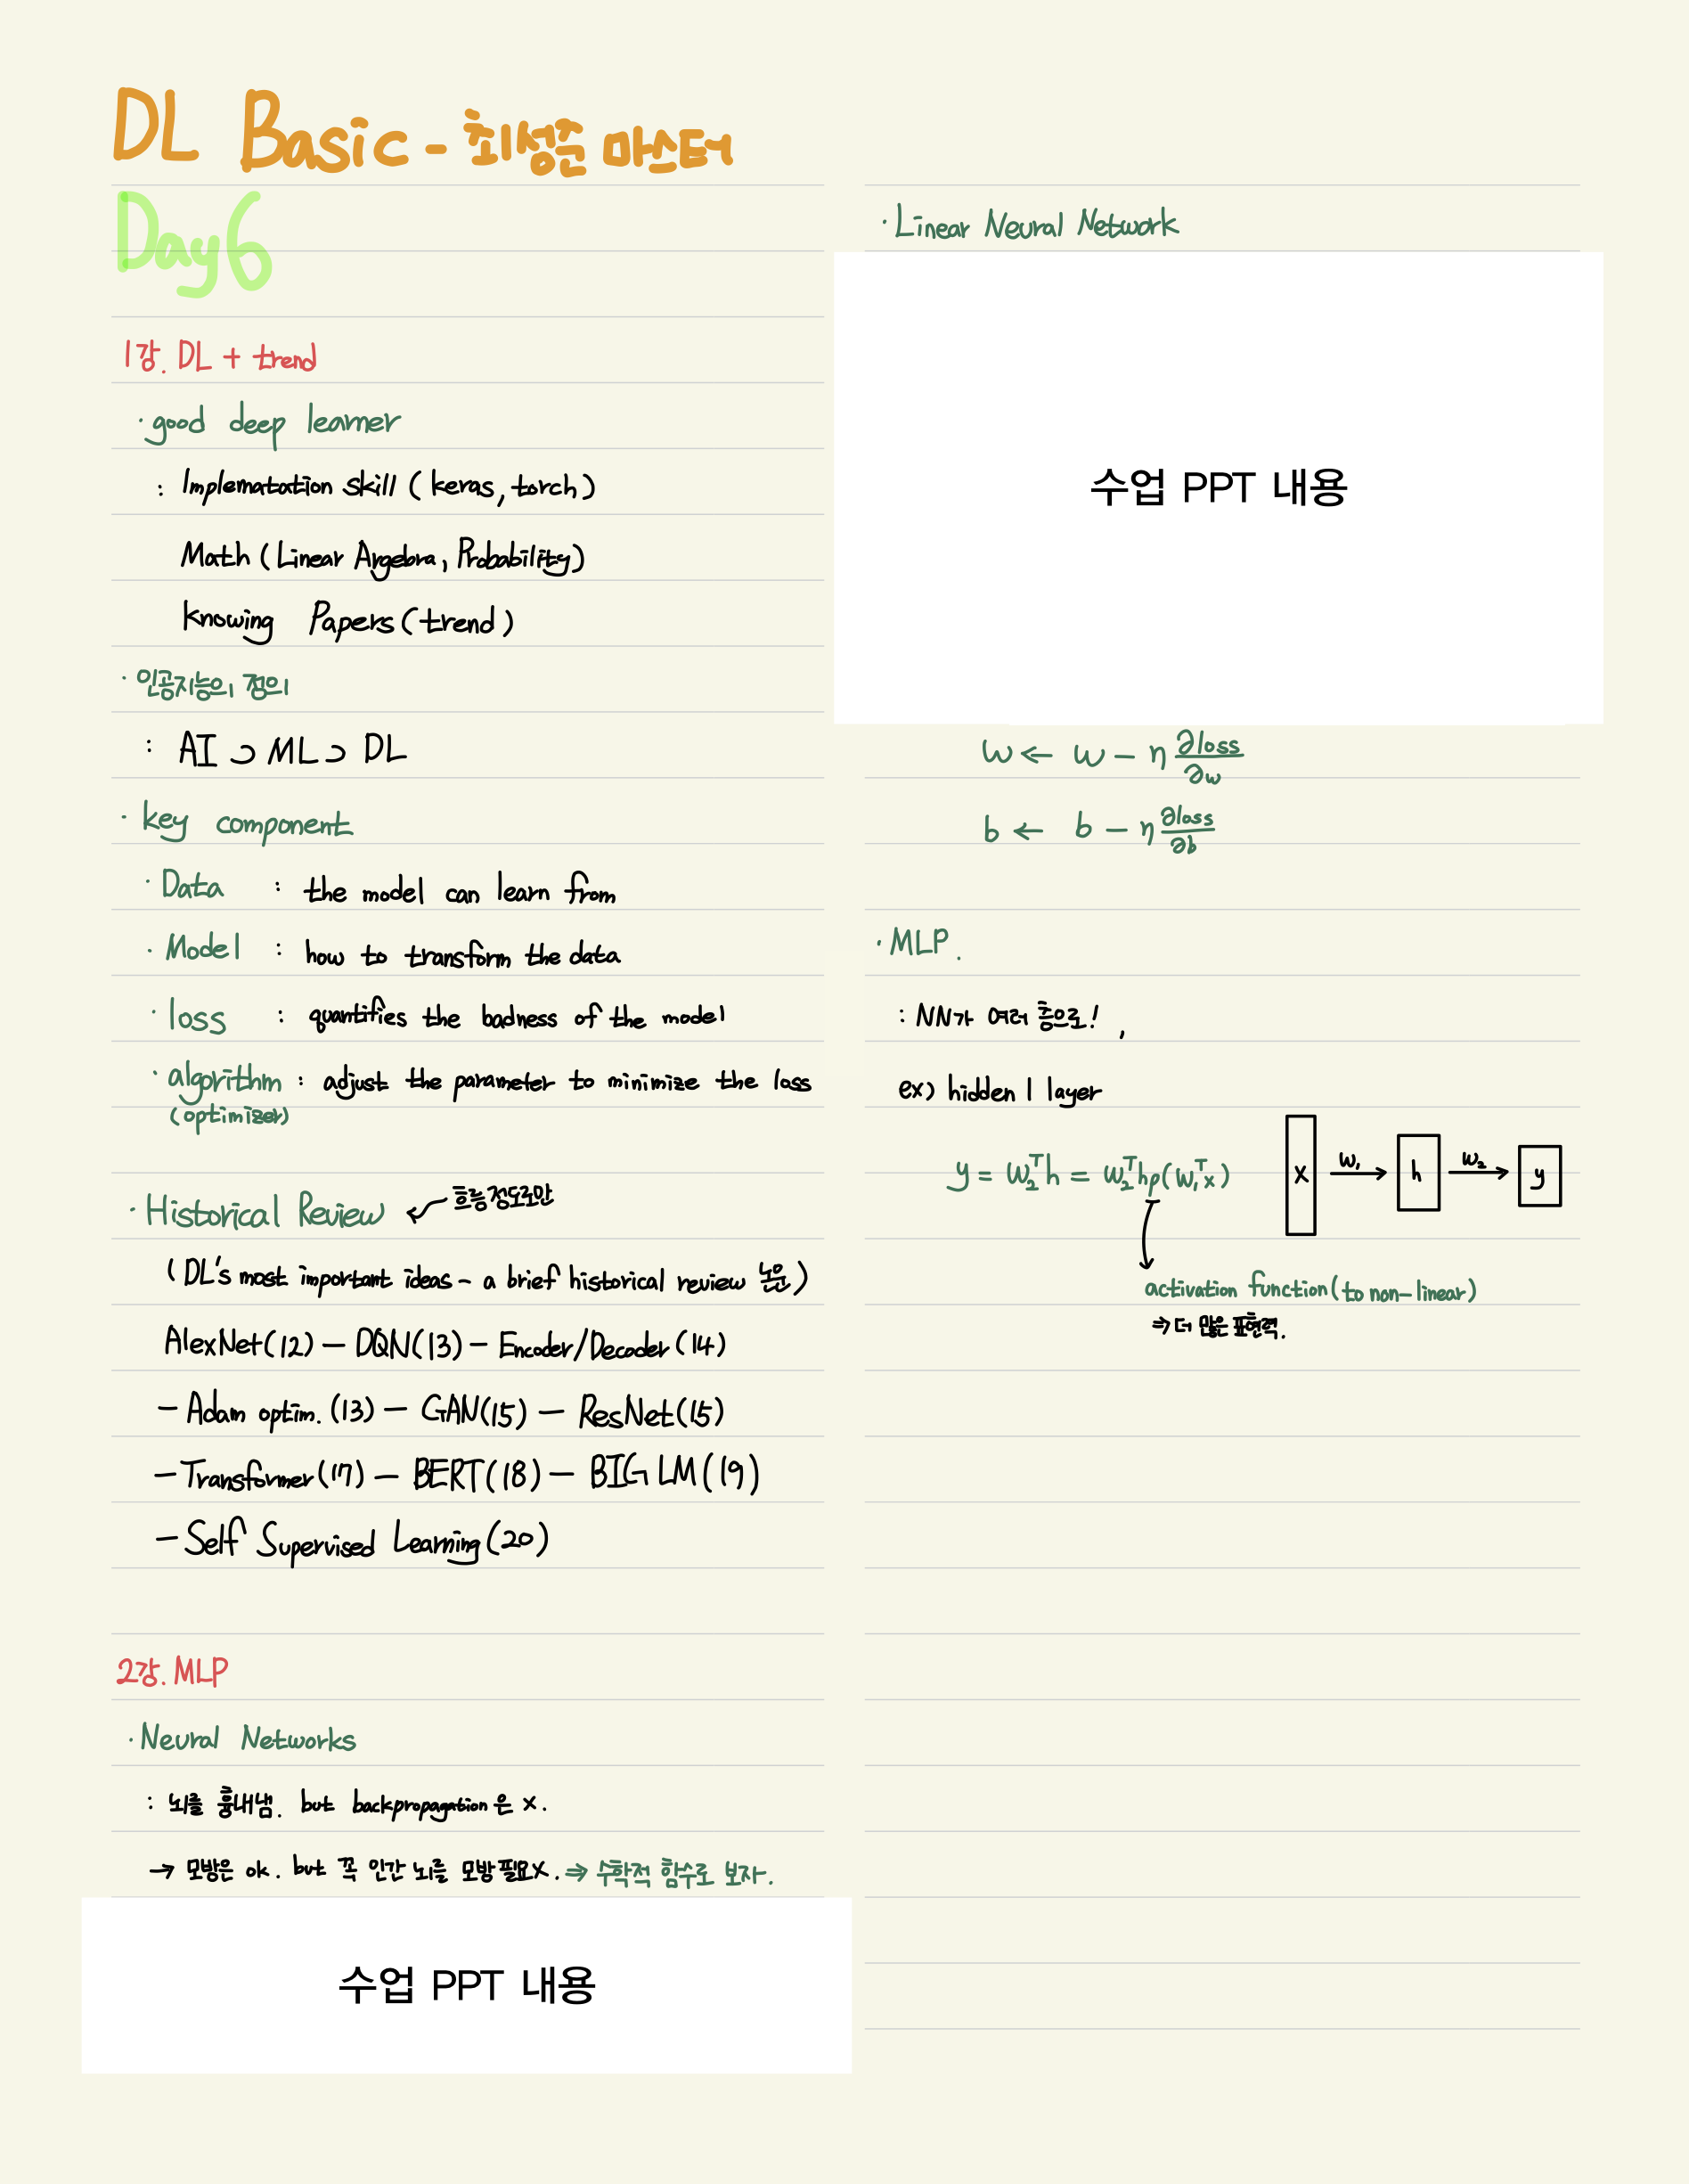 DL Basic - 최성준 마스터
Day6
1강. DL + trend
· good deep learner
: Implematation skill ( keras, torch )
Math ( Linear Argebra, Probability )
Knowing Papers ( trend )
· 인공지능의 정의
: AI ⊃ ML ⊃ DL
· key component
· Data : the model can learn from
· Model : how to transform the data
· loss : quantifies the badness of the model
· algorithm : adjust the parameter to minimize the loss
( optimizer )
· Historical Review ↙ 흐름 정도로만
( DL's most important ideas - a brief historical review 논문 )
AlexNet(12) - DQN(13) - Encoder/Decoder (14)
- Adam optim. (13) - GAN(15) - ResNet(15)
- Transformer(17) - BERT(18) - BIG LM(19)
- Self Supervised Learning(20)
2강. MLP
· Neural Networks
: 뇌를 흉내냄. but backpropagation은 x.
→ 모방은 ok. but 꼭 인간 뇌를 모방필요X. ⇒ 수학적 함수로 보자.
수업 PPT 내용
· Linear Neural Network
수업 PPT 내용
w ← w - η ∂loss/∂w
b ← b - η ∂loss/∂b
· MLP.
: NN가 여러 층으로! ,
ex) hidden 1 layer
y = W₂ᵀh = W₂ᵀhρ(W₁ᵀx)
x W₁ h W₂ y
activation function ( to non-linear )
⇒ 더 많은 표현력.